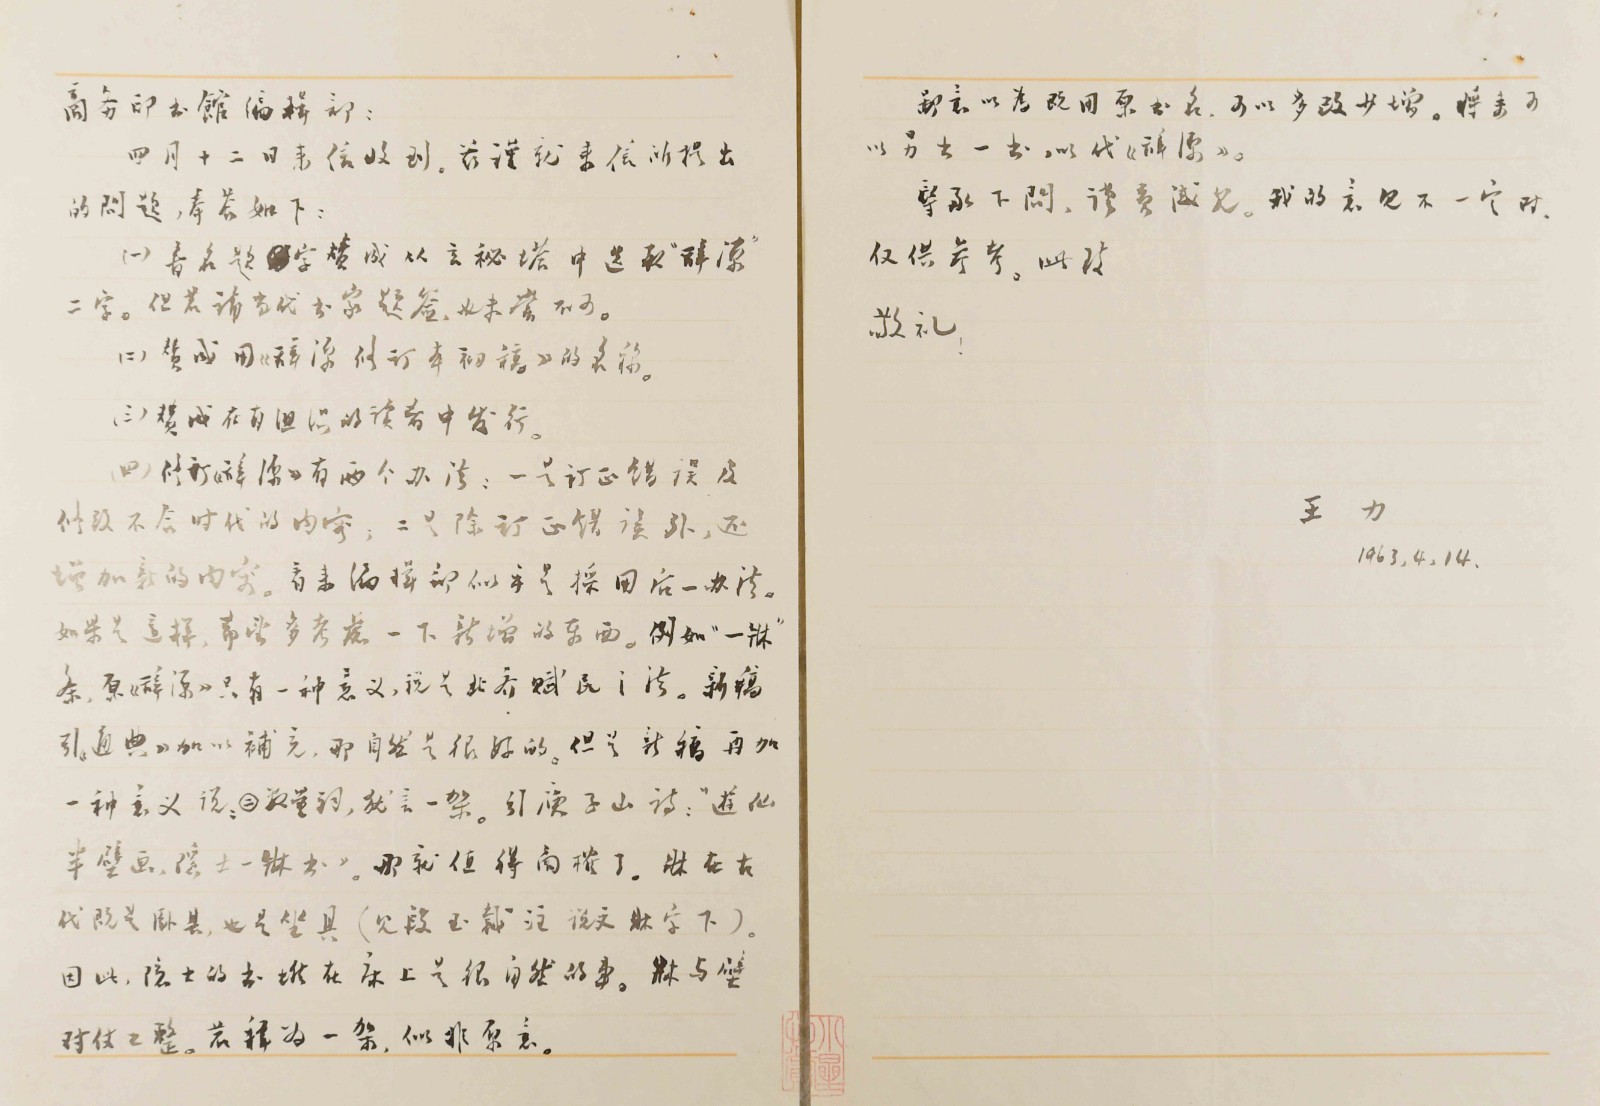 商务印书館编辑部：
四月十二日来信收到。兹谨就来信所提出
的問題，奉荅如下：
（一）書名题字赞成从玄秘塔中选取“辞源”
二字。但若請当代书家题签，也未尝不可。
（二）赞成用《辞源修订本初稿》的名称。
（三）赞成在有组织的读者中发行。
（四）修订《辞源》有两个办法：一是订正错误及
修改不合时代的内容；二是除订正错误外，还
增加新的内容。看来编辑部似乎是採用后一办法。
如果是這样，希望多考虑一下新增的东西。例如“一牀”
条，原《辞源》只有一种意义，说是北齐赋民之法。新稿
引《通典》加以補充，那自然是很好的。但是新稿再加
一种意义说：㊂数量词，犹言一架。引庾子山诗：“遊仙
半壁画，隐士一牀书”。那就值得商榷了。牀在古
代既是卧具，也是坐具（见段玉裁注说文牀字下）。
因此，隐士的书堆在床上是很自然的事。牀与壁
对仗工整。若释为一架，似非原意。
鄙意以为既用原书名，可以多改少增。将来可
以另出一书，以代《辞源》。
辱承下問，谨贡浅见。我的意见不一定对，
仅供参考。此致
敬礼！
王力
1963.4.14.